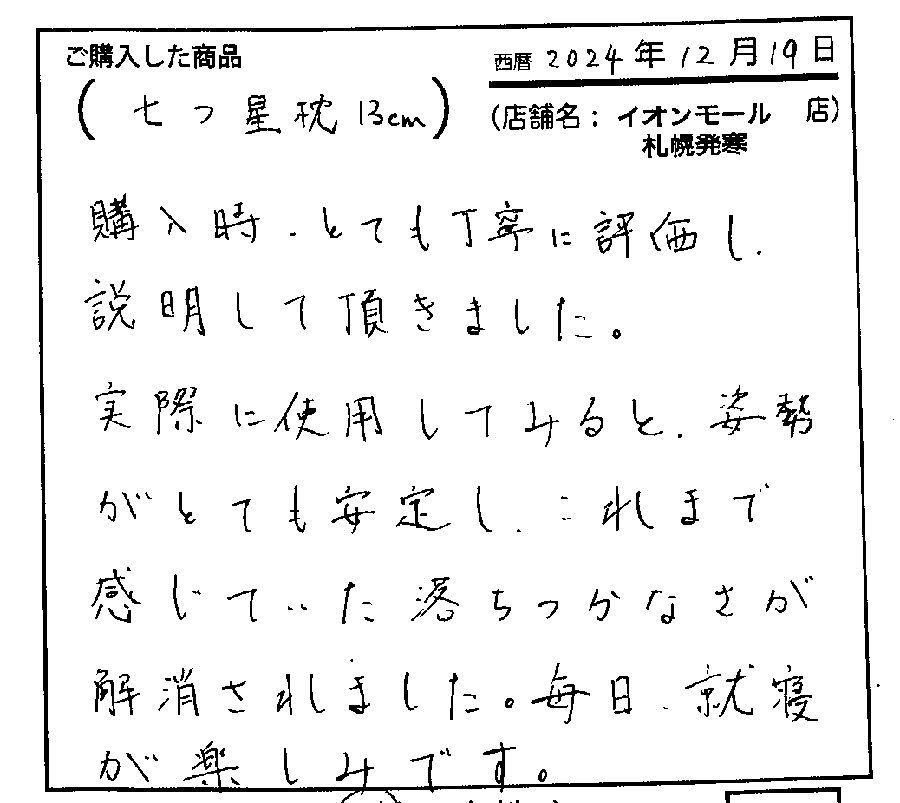 ご購入した商品
西暦 2024年12月19日
(七つ星枕 13cm)
(店舗名：イオンモール 店)
札幌発寒
購入時、とても丁寧に評価し、
説明して頂きました。
実際に使用してみると、姿勢
がとても安定し、これまで
感じていた落ちつかなさが
解消されました。毎日、就寝
が楽しみです。